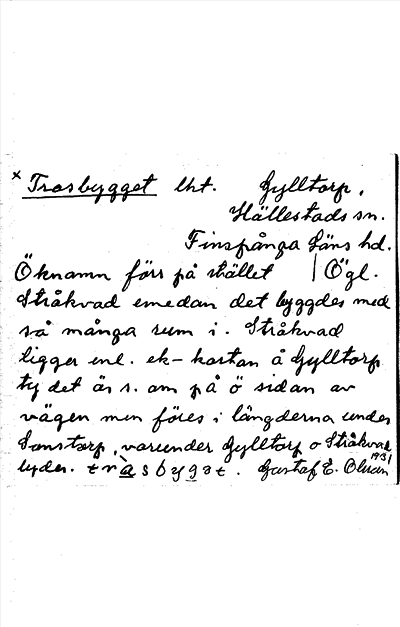 x Trasbygget lht. Gylltorp,
Hällestads sn.
Finspånga läns hd.
Öknamn förr på stället | Ögl.
Stråkvad emedan det byggdes med
så många rum i. Stråkvad
ligger enl. ek-kartan å Gylltorp
ty det är s. om på ö sidan av
vägen men föres i längderna under
Sonstorp, varunder Gylltorp o Stråkvad
lyder. tràsbyget. Gustaf E. Olsson
1931